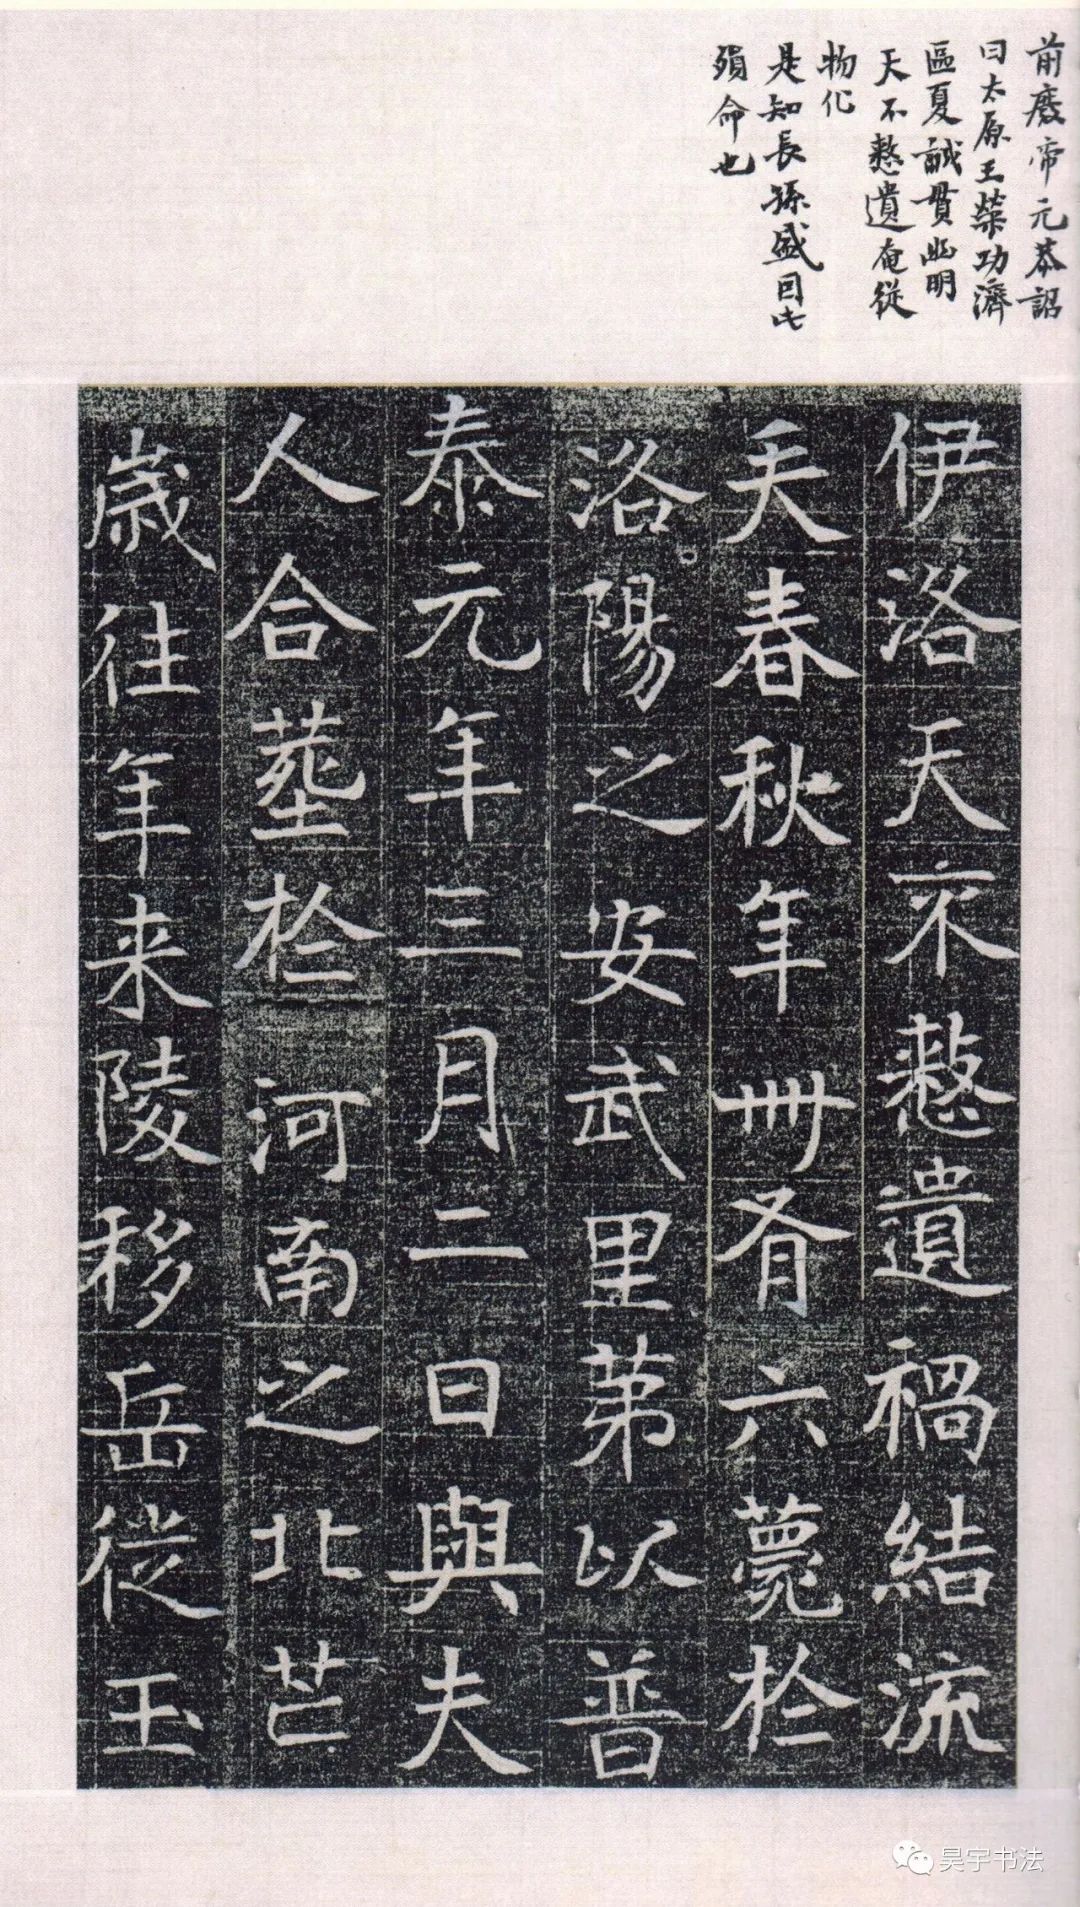 前廢帝元恭詔
曰太原王榮功濟
區夏誠貫幽明
天不憖遺奄從
物化
是知長孫盛因此
殞命也
伊洛天不憖遺禍結流
天春秋年卌有六薨扵
洛陽之安武里苐以普
泰元年三月二日與夫
人合塟扵河南之北芒
歲往年来陵移岳從玉
昊宇书法